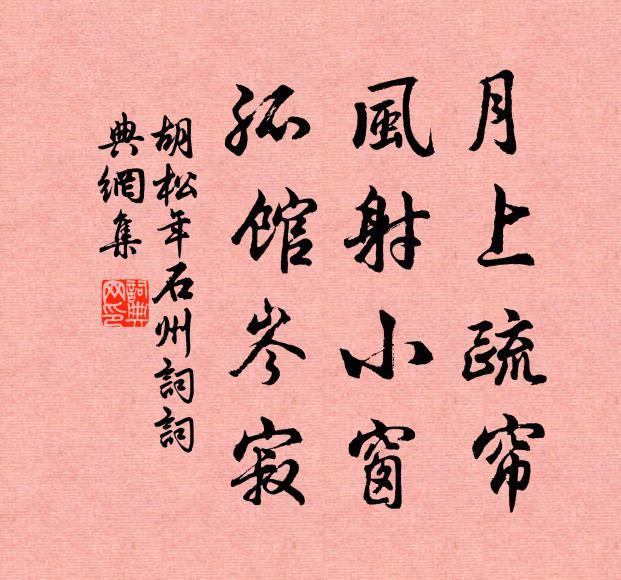 月上疏帘
風射小窗
孤館岑寂
胡松年石州詞詞
典網集
詞典
网印